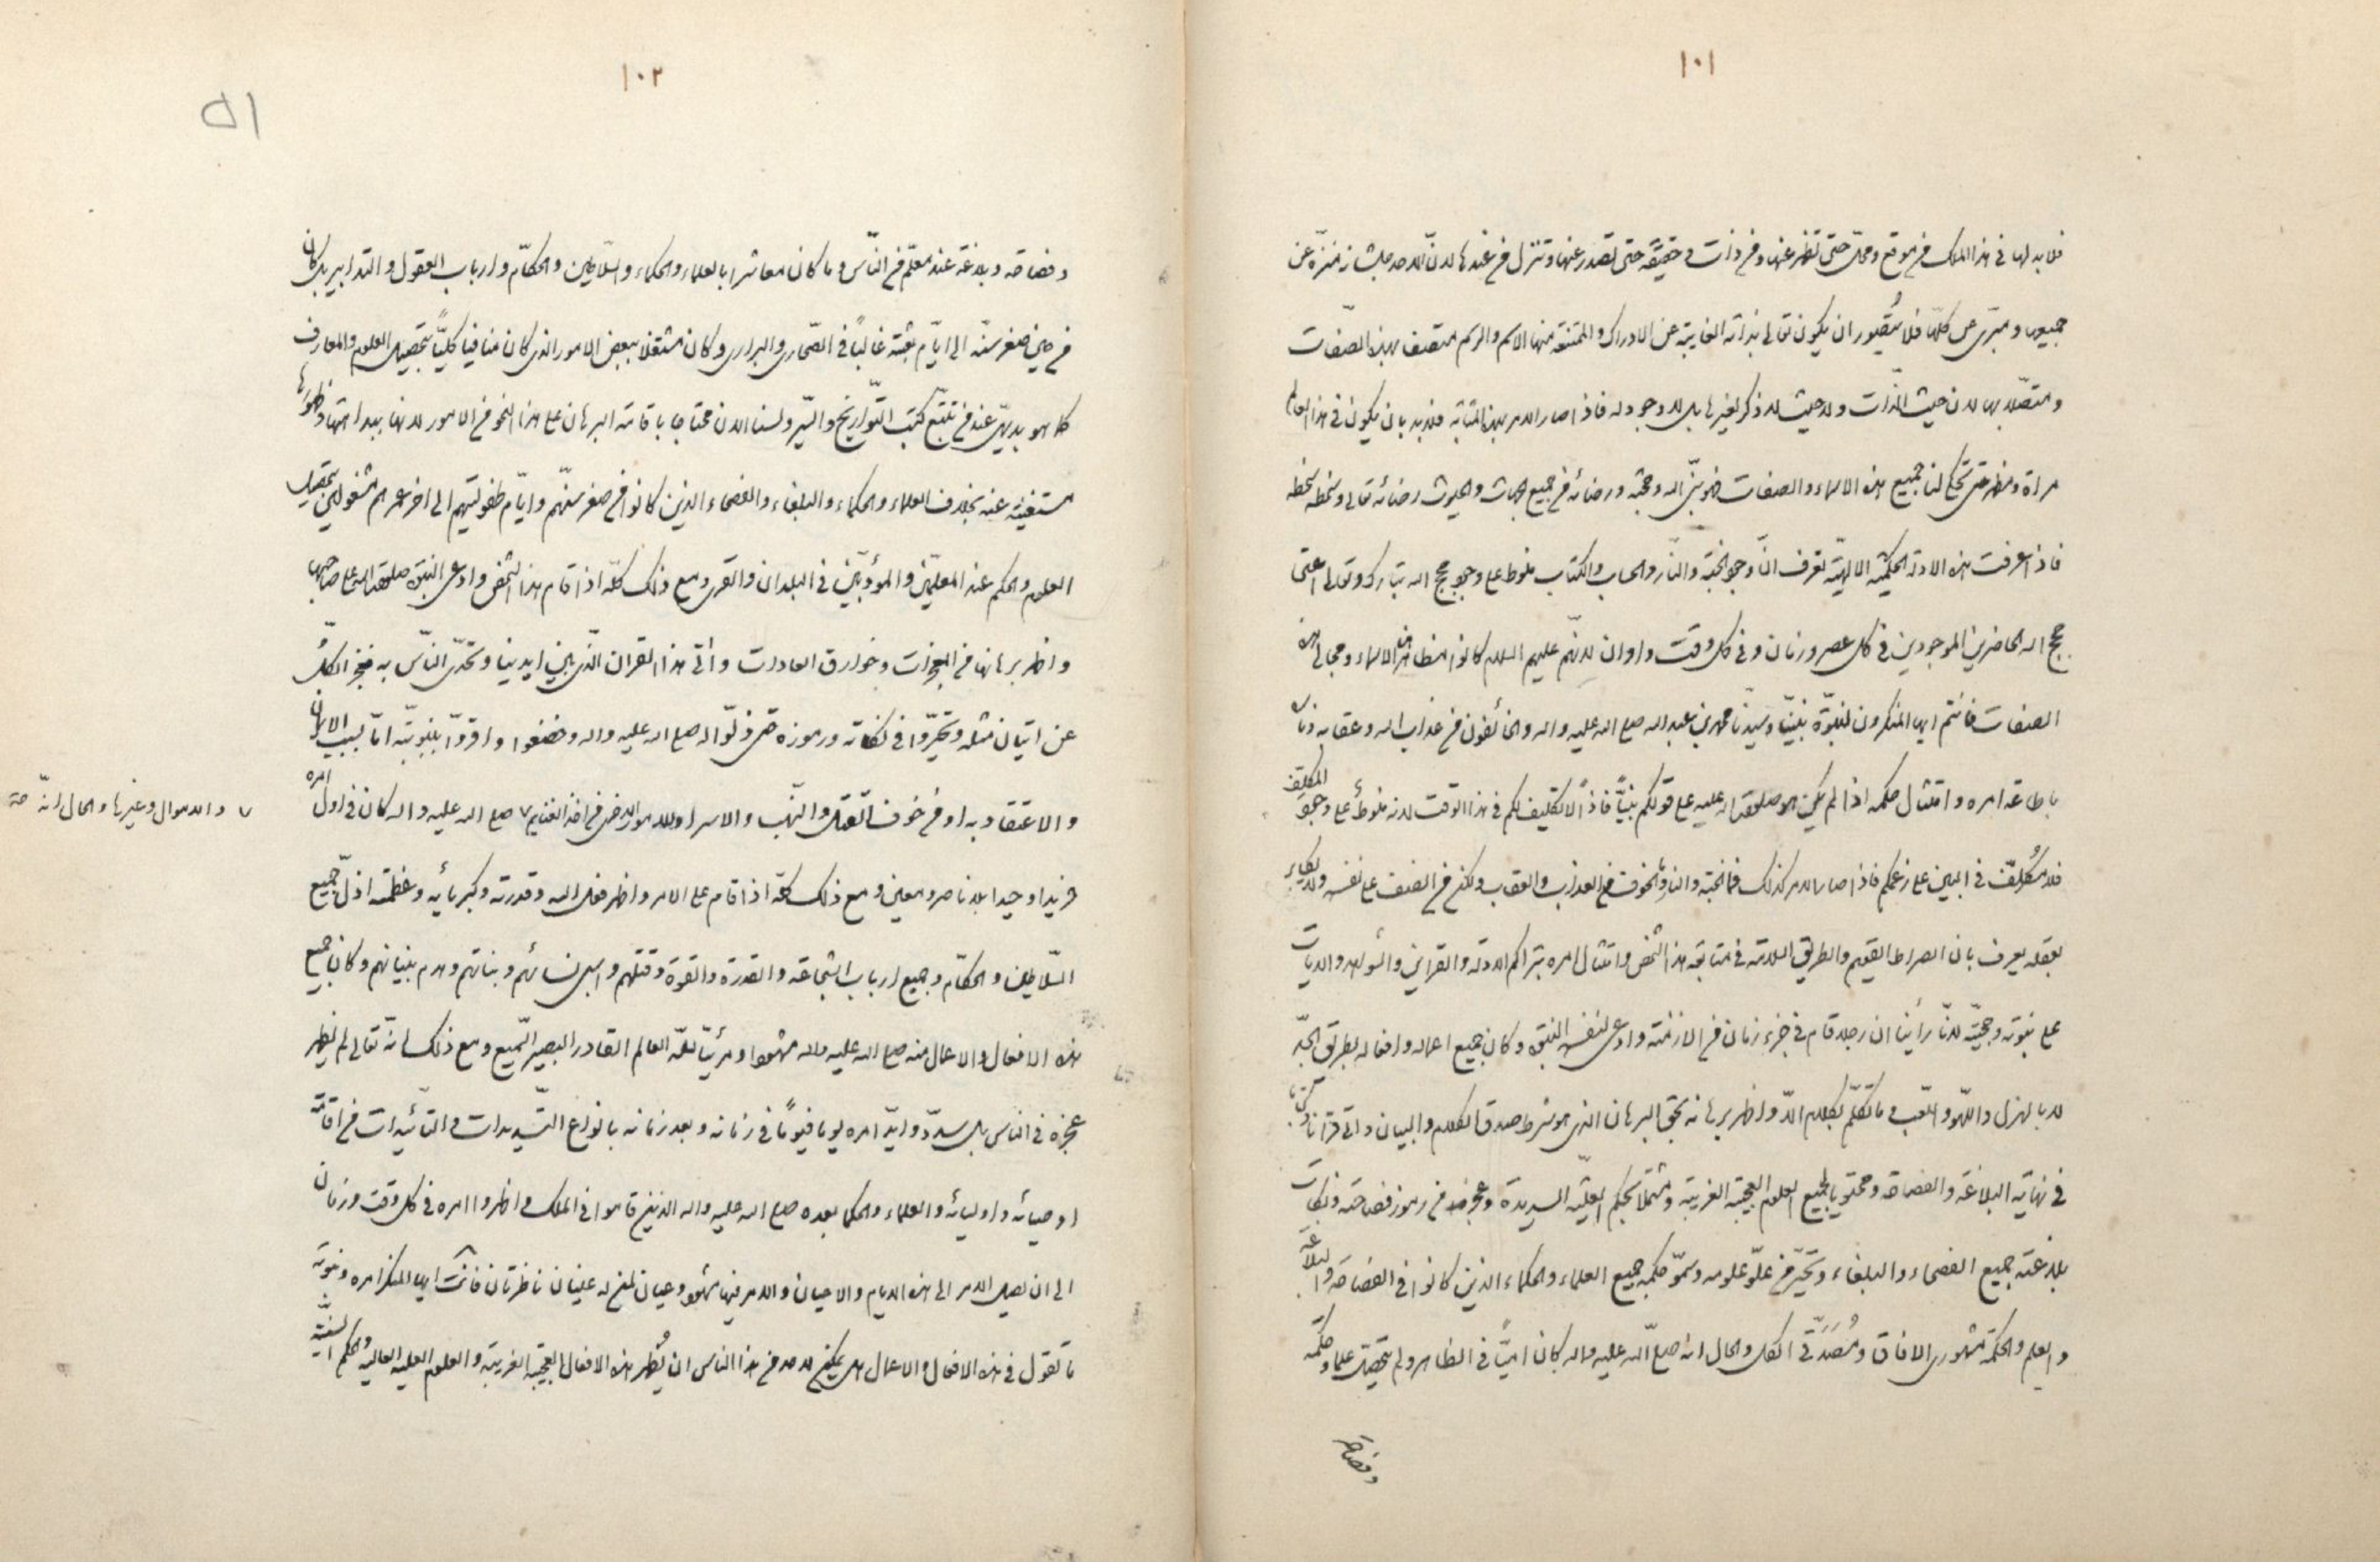 ١٠١
فلا بد لها في هذا الملك من موقع ومحل حتى تظهر عنها ومن ذات وحقيقة حتى تصدر عنها وتنزل من عندها لان الله جل شانه منزه عن
جميعها ومبرى عن كلها فلا يتصور ان يكون تعالى بذاته الغايبة عن الادراك والممتنعة منها الاسم والرسم متصف بهذه الصفات
بها لان حيث الذات ولا حيث لا ذكر لغيرها بل لا وجود له فاذا صار الامر بهذه المثابة فلا بد بان يكون في هذا العالم
مراة ومظهر حتى تحكي لنا جميع هذه الاسماء والصفات الله وحجته ورضائه في جميع الجهات والحيوث رضائه تعالى وسخطه سخطه
فاذا عرفت هذه الادلة الحكمية الالهية تعرف ان وجود الجنة والنار والحساب والكتاب منوط على وجود حجج الله تبارك وتعالى اعنى
حجج الله الحاضرين الموجودين في كل عصر وزمان وفي كل وقت واوان لانهم عليهم السلام كانوا مظاهر هذه الاسماء ومجالي هذه
الصفات فانتم ايها المنكرون لنبوة نبينا وسيدنا محمد بن عبد الله صلى الله عليه واله والخائفون من عذاب الله وعقابه
باطاعة امره وامتثال حكمه اذا لم يكن هو صلوات الله عليه على قولكم نبيا فاذا لا تكليف لكم في هذا الوقت لانه منوط على وجود المكلف
فلا مكلف في البين على زعمكم فاذا صار الامر كذلك فما الجنة والنار والخوف من العذاب والعقاب ولكن من انصف على نفسه
بعقله يعرف بان الصراط القويم والطريق في متابعة هذا الشخص وامتثال امره بتراكم الادلة والقراين والشواهد والايات
على نبوته وحجيته لانا راينا ان رجلا قام في جزء زمان من الازمنة وادعى لنفسه النبوة وكان جميع اعماله وافعاله بطريق الجد
لا بالهزل واللهو واللعب وما تكلم بكلام الا واظهر برهانه بحق البرهان الذي هو شرط صدق الكلام والبيان واتى قرانا وكتابا
في نهاية البلاغة والفصاحة ومحتويا بجميع العلوم العجيبة الغريبة ومشتملا بحكم العلية السديدة وعجز من رموز فصاحته ونكات
بلاغته جميع الفصحاء والبلغاء وتحير من علو علومه وسمو حكمه جميع العلماء والحكماء الذين كانوا في الفصاحة والبلاغة
والعلم والحكمة مشهوري الافاق ومصدقي الكل والحال انه صلى الله عليه واله كان اميا في الظاهر ولم يتحصل علما وحكمة
وفصاحة
١٠٢
١٥
وفصاحة وبلاغة عند معلم من الناس وما كان معاشرا بالعلماء والحكماء والسلاطين والحكام وارباب العقول والتدابير بل كان
من حين صغر سنه الى ايام بعثته غالبا في الصحاري والبراري وكان مشتغلا ببعض الامور الذي كان منافيا كليا بتحصيل العلوم والمعارف
كما هو بديهي عند من تتبع كتب التواريخ والسير ولسنا الان محتاجا باقامة البرهان على هذا النحو من الامور لانها ببداهتها وظهورها
مستغنية عنه بخلاف العلماء والحكماء والبلغاء والفصحاء الذين كانوا من صغر سنهم وايام طفوليتهم الى اخر عمرهم مشغولين بتحصيل
العلوم والحكم عند المعلمين والمؤدبين في البلدان والقرى ومع ذلك كله اذا قام هذا الشخص وادعى النبوة صلوات الله على صاحبها
واظهر برهانها من المعجزات وخوارق العادات واتى هذا القران الذي بين ايدينا وتحدى الناس به عجز الكل
عن اتيان مثله وتحيروا في نكاته ورموزه حتى ذلوا له صلى الله عليه واله وخضعوا واقروا بنبوته اما لسبب الايمان
والاعتقاد به او من خوف القتل والنهب والاسر او للامور الاخرى من اخذ الغنايم ٧ صلى الله عليه واله كان في اول امره
٧ والاموال وغيرها والحال انه صح
فريدا وحيدا بلا ناصر ومعين ومع ذلك كله اذا قام على الامر واظهر فعل الله وقدرته وكبريائه وعظمته اذل جميع
السلاطين والحكام وجميع ارباب الشجاعة والقدرة والقوة وقتلهم واسر نسائهم وبناتهم وهدم بنيانهم وكان جميع
هذه الافعال والاعمال منه صلى الله عليه واله مشهودا ومرئيا لله العالم القادر البصير السميع ومع ذلك انه تعالى لم يظهر
عجزه في الناس بل سدد وايد امره يوما فيوما في زمانه وبعد زمانه بانواع التسديدات والتائيدات من اقامة
اوصيائه واوليائه والعلماء والحكما بعده صلى الله عليه واله الذين قاموا في الملك واظهروا امره في كل وقت وزمان
الى ان يصل الامر الى هذه الايام والاحيان والامر فيها مشهود وعيان لمن له عينان ناظرتان فانت ايها المنكر امره ونبوته
ما تقول في هذه الافعال والاعمال هل يمكن لاحد من هذا الناس ان يظهر هذه الافعال العجيبة الغريبة والعلوم العليه العاليه والحكم السنية